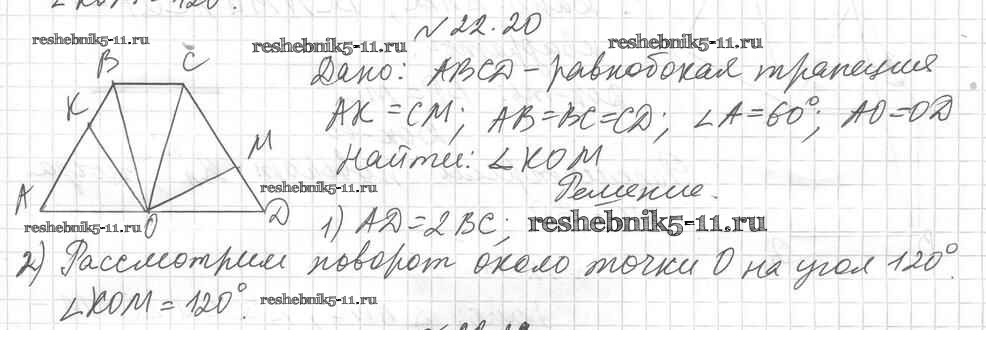 ∠KOM = 120°.
№ 22.20
reshebnik5-11.ru
reshebnik5-11.ru
reshebnik5-11.ru
B C
Дано: ABCD – равнобокая трапеция
K
AK = CM; AB = BC = CD; ∠A = 60°; AO = OD
M
Найти: ∠KOM
A
reshebnik5-11.ru
Решение.
O
D
reshebnik5-11.ru
1) AD = 2BC;
reshebnik5-11.ru
2) Рассмотрим поворот около точки O на угол 120°.
∠KOM = 120°.
reshebnik5-11.ru